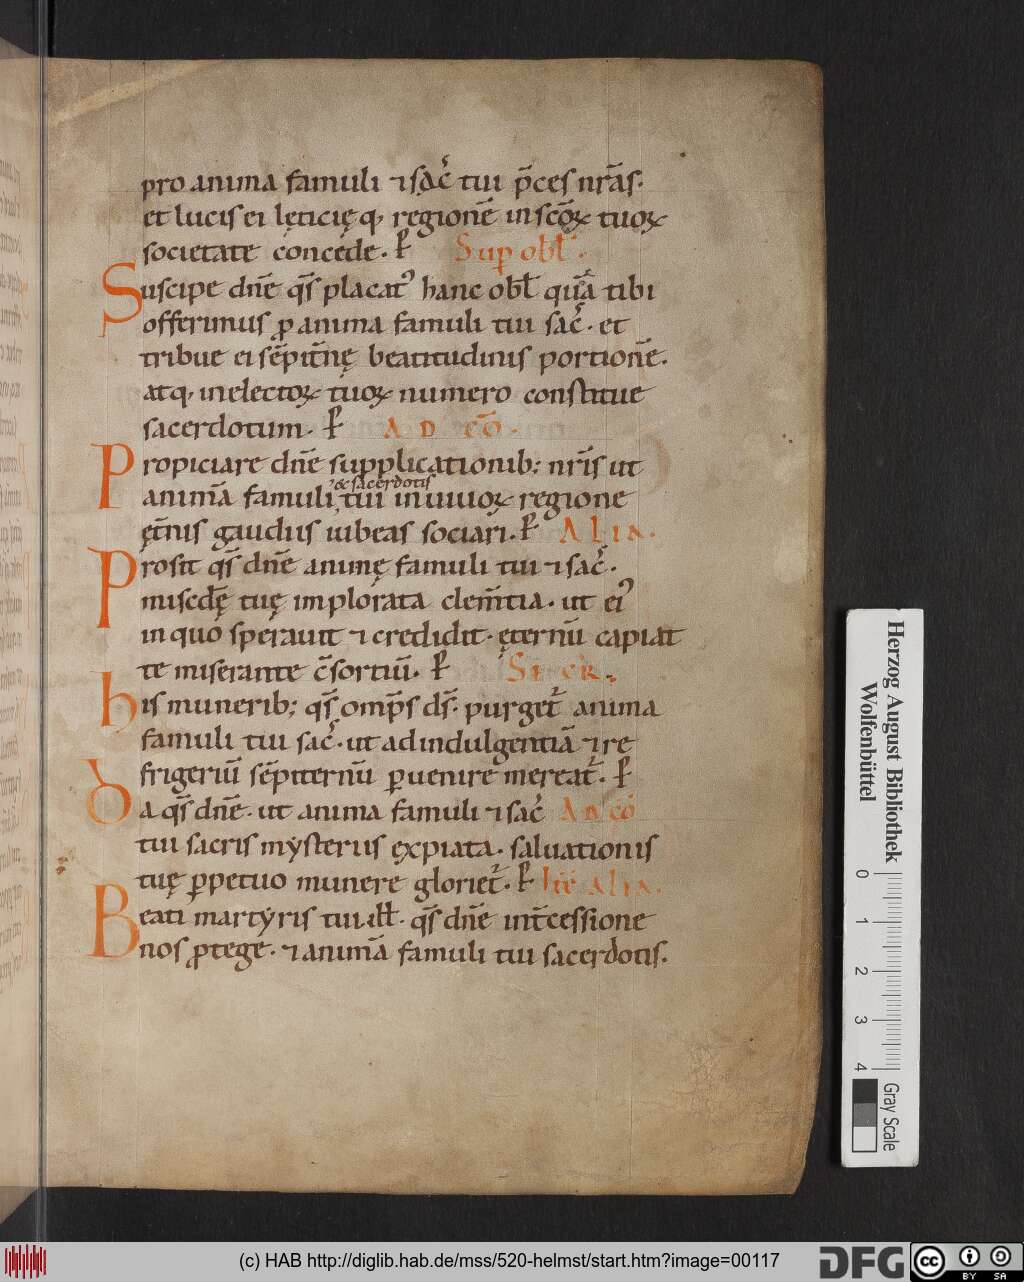 pro anima famuli ⁊ sac̄ tui p̄ces nr̄as.
et lucis ei lęticięq, regionē in sc̄oꝝ tuoꝝ
societate concede. ꝑ Sup obl̄.
Suscipe dn̄e qs̄ placatꝰ hanc obl̄ quā tibi
offerimus ꝓ anima famuli tui sac̄. et
tribue ei sēpit̄nę beatitudinis portionē.
atq, in electoꝝ tuoꝝ numero constitue
sacerdotum. ꝑ AD cō.
Propiciare dn̄e supplicationib; nr̄is ut
⁊ sacerdotis
animā famuli tui in uiuoꝝ regione
ęt̄nis gaudiis iubeas sociari. ꝑ Alia.
Prosit qs̄ dn̄e animę famuli tui ⁊ sac̄.
miscd̄ę tuę implorata clem̄tia. ut eiꝰ
in quo sperauit ⁊ credidit. ęternū capiat
te miserante c̄sortiū. ꝑ Secr̄.
his munerib; qs̄ omp̄s ds̄. purget᷑ anima
famuli tui sac̄. ut ad indulgentiā ⁊ re
frigeriū sēpiternū ꝑuenire mereat᷑. ꝑ
Da qs̄ dn̄e. ut anima famuli ⁊ sac̄ Ad cō
tui sacris mẏsteriis expiata. saluationis
tuę ꝑpetuo munere gloriet᷑. ꝑ Itē alia.
Beati martẏris tui. ill̄. qs̄ dn̄e int̄cessione
nos ꝓtege. ⁊ animā famuli tui sacerdotis.
Herzog August Bibliothek
Wolfenbüttel
0 1 2 3 4
Gray Scale
(c) HAB http://diglib.hab.de/mss/520-helmst/start.htm?image=00117
DFG
cc BY SA